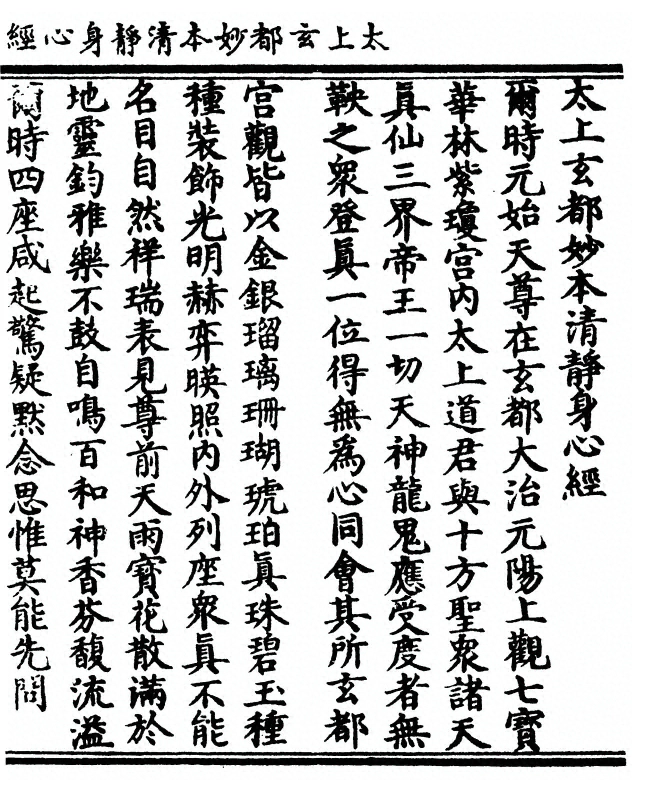 太上玄都妙本清靜身心經
太上玄都妙本清靜身心經
爾時元始天尊在玄都大治元陽上觀七寶
華林紫瓊宮內太上道君與十方聖衆諸天
眞仙三界帝王一切天神龍鬼應受度者無
鞅之衆登眞一位得無爲心同會其所玄都
宮觀皆以金銀瑠璃珊瑚琥珀眞珠碧玉種
種裝飾光明赫弈暎照內外列座衆眞不能
名目自然祥瑞表見尊前天雨寶花散滿於
地靈鈞雅樂不鼓自鳴百和神香芬馥流溢
爾時四座咸起驚疑黙念思惟莫能先問